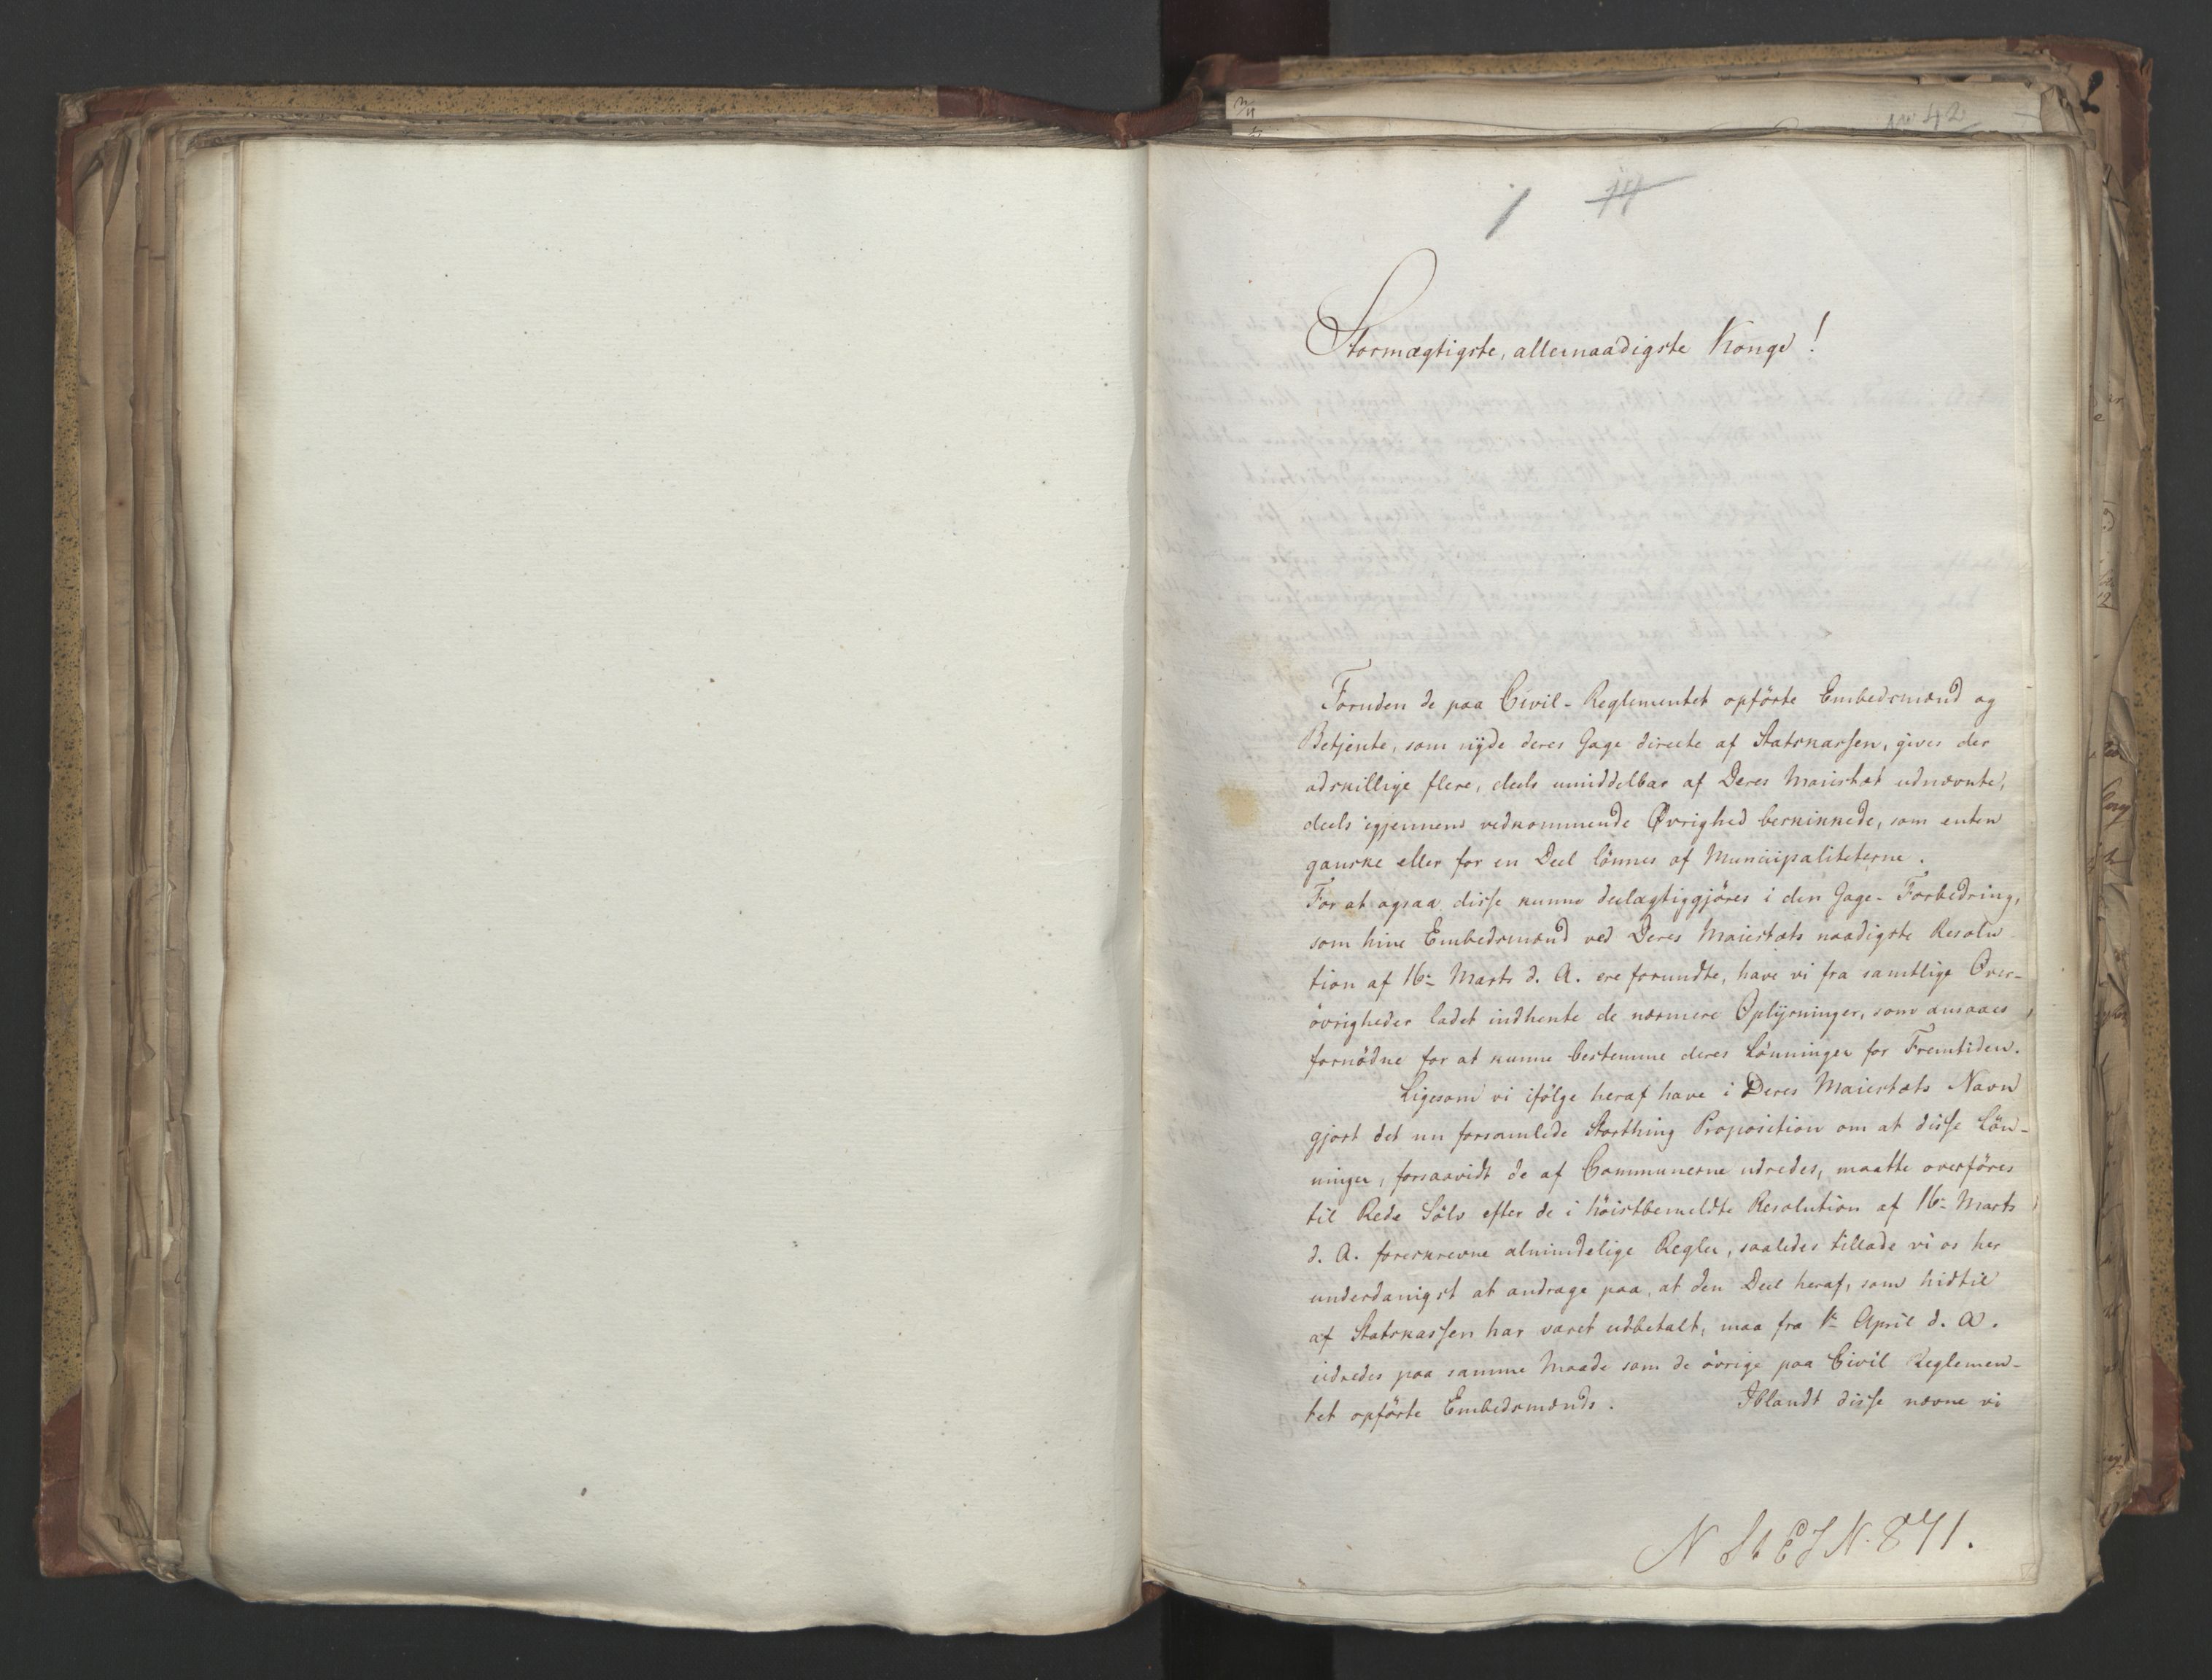 No 42
1
Stormægtigste, allernaadigste Konge!
Foruden de paa Civil-Reglementet opförte Embedsmænd og
Betjente, som nyde deres Gage directe af Statskassen, gives der
adskillige flere, deels umiddelbar af Deres Maiestæt udnævnte,
deels igjennem vedkommende Øvrighed beskikkede, som enten
ganske eller for en Deel lönnes af Municipaliteterne.
For at ogsaa disse kunne deelagtiggjöres i den Gage-Forbedring,
som hine Embedsmænd ved Deres Maiestæts naadigste Resolu
tion af 16de Marts d. A. ere forundte, have vi fra samtlige Over-
övrigheder ladet indhente de nærmere Oplysninger, som ansaaes
fornödne for at kunne bestemme deres Lönninger for Fremtiden.
Ligesom vi ifölge heraf have i Deres Maiestæts Navn
gjort det nu forsamlede Storthing Proposition om at disse Lön-
ninger, forsaavidt de af Communerne udredes, maatte overföres
til Rede Sölv efter de i höistbemeldte Resolution af 16de Marts
d. A. foreskrevne almindelige Regler, saaledes tillade vi os her
underdanigst at andrage paa, at den Deel heraf, som hidtil
af Statskassen har været udbetalt, maa fra 1te April d. A.
udredes paa samme Maade som de övrige paa Civil Reglemen-
tet opförte Embedsmænds. Iblandt disse nævne vi
N. 871.